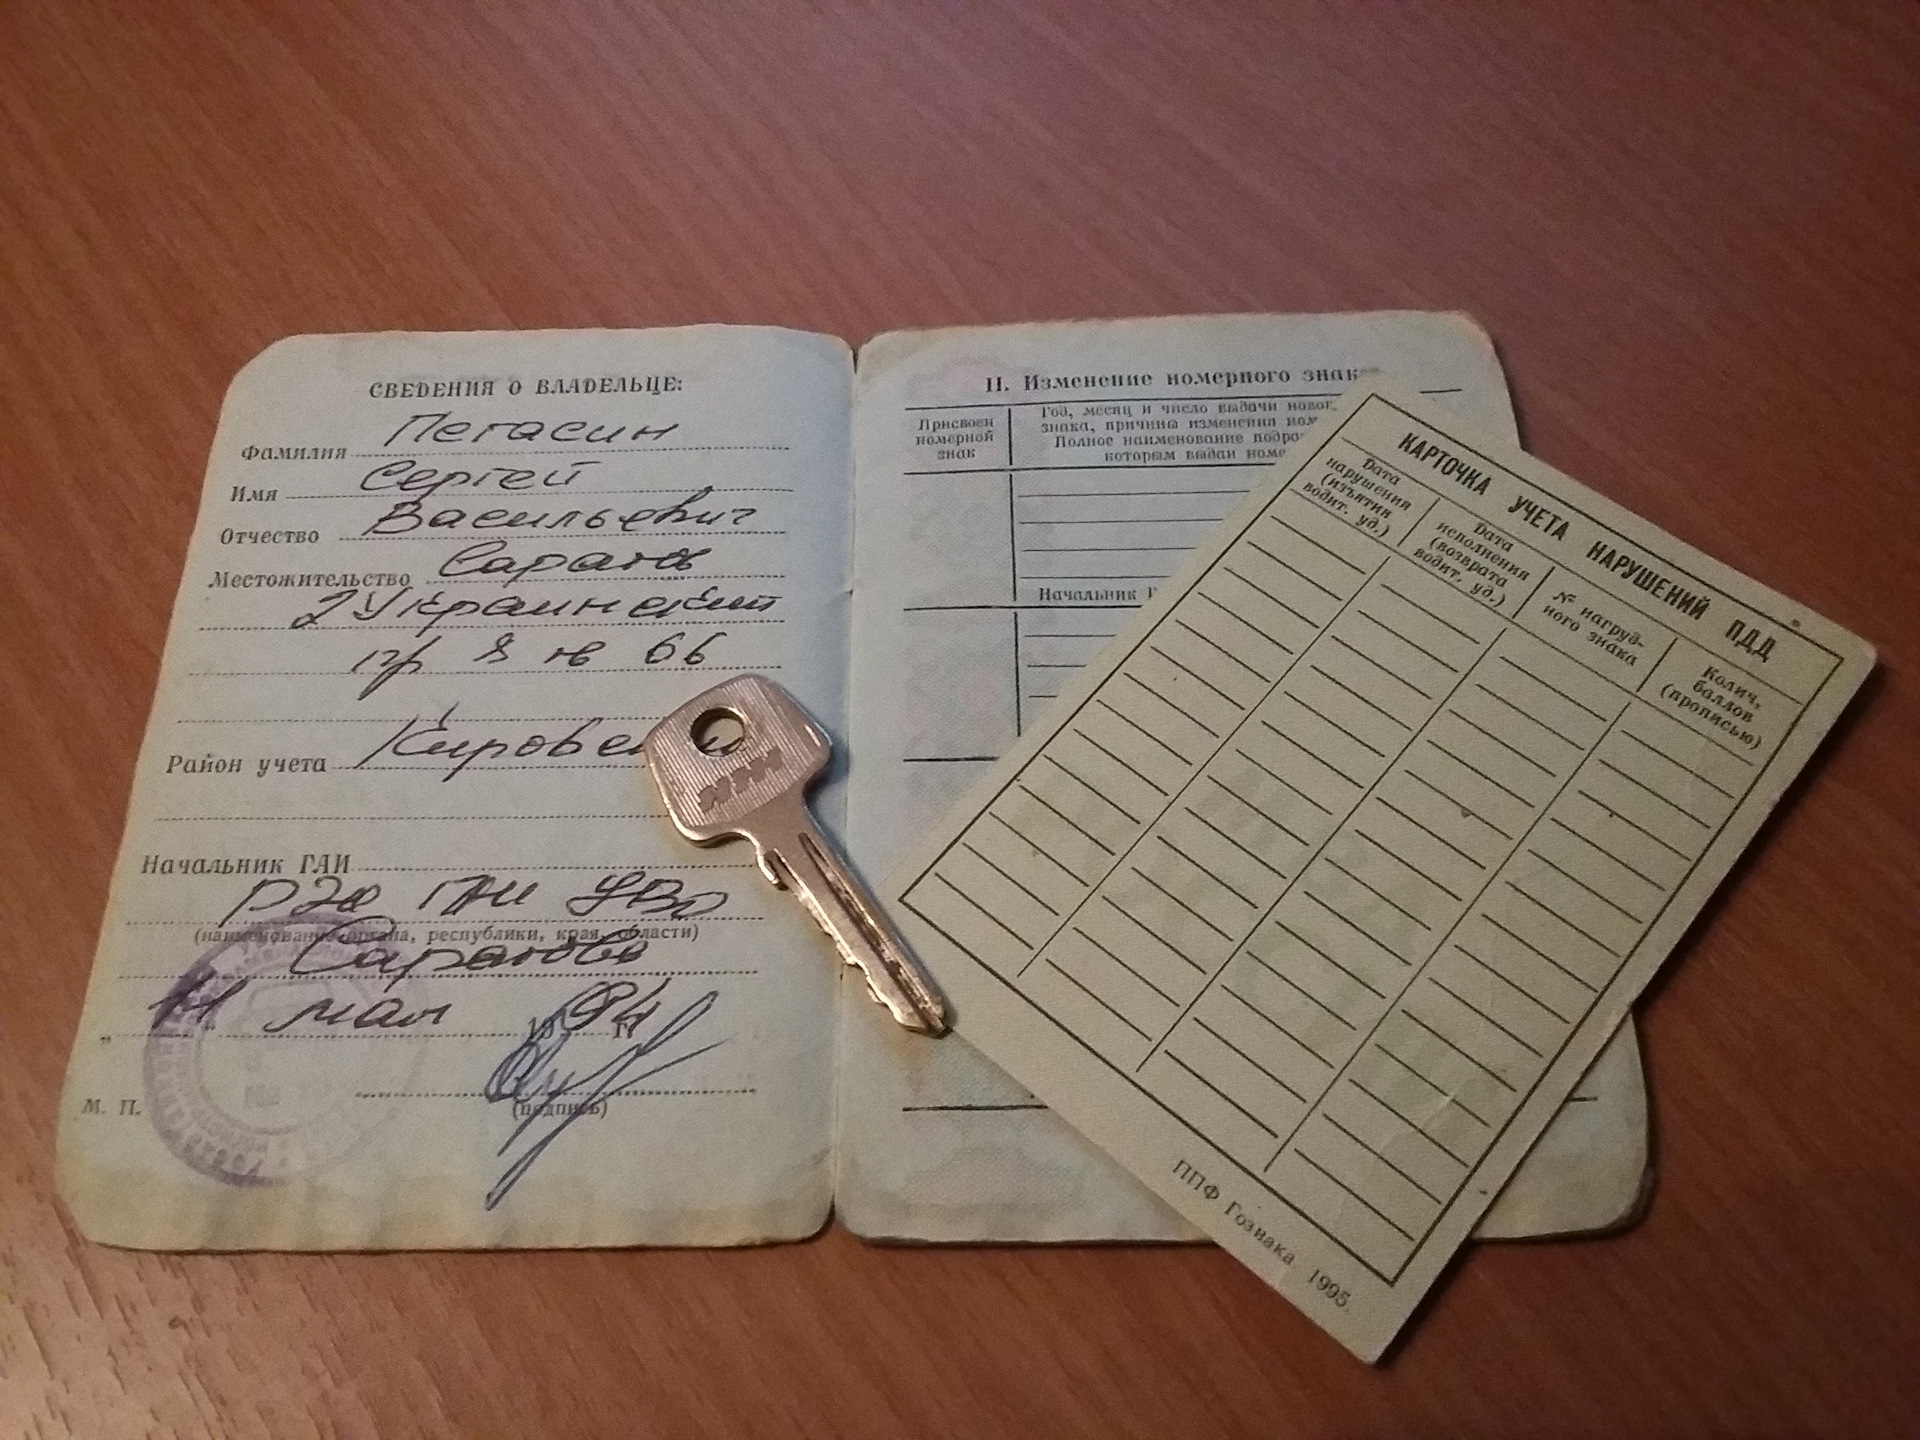 СВЕДЕНИЯ О ВЛАДЕЛЬЦЕ:
Фамилия Пегасин
Имя Сергей
Отчество Васильевич
Местожительство Саратов
2 Украинский
пр 8 кв 66
Район учета
Начальник ГАИ
РЭО ГАИ УВД
(наименование органа, республики, края, области)
Саратова
11 мая 1994 г.
(подпись)
М. П.
II. Изменение номерного знак
Присвоен номерной знак
Год, месяц и число выдачи новог
знака, причины изменения ном
Полное наименование подра
которым выдан номе
Начальник Г
КАРТОЧКА УЧЕТА НАРУШЕНИЙ ПДД
Дата нарушения (изъятия водит. уд.)
Дата исполнения (возврата водит. уд.)
№ нагруд-
ного знака
Колич. баллов (прописью)
ППФ Гознака. 1995.